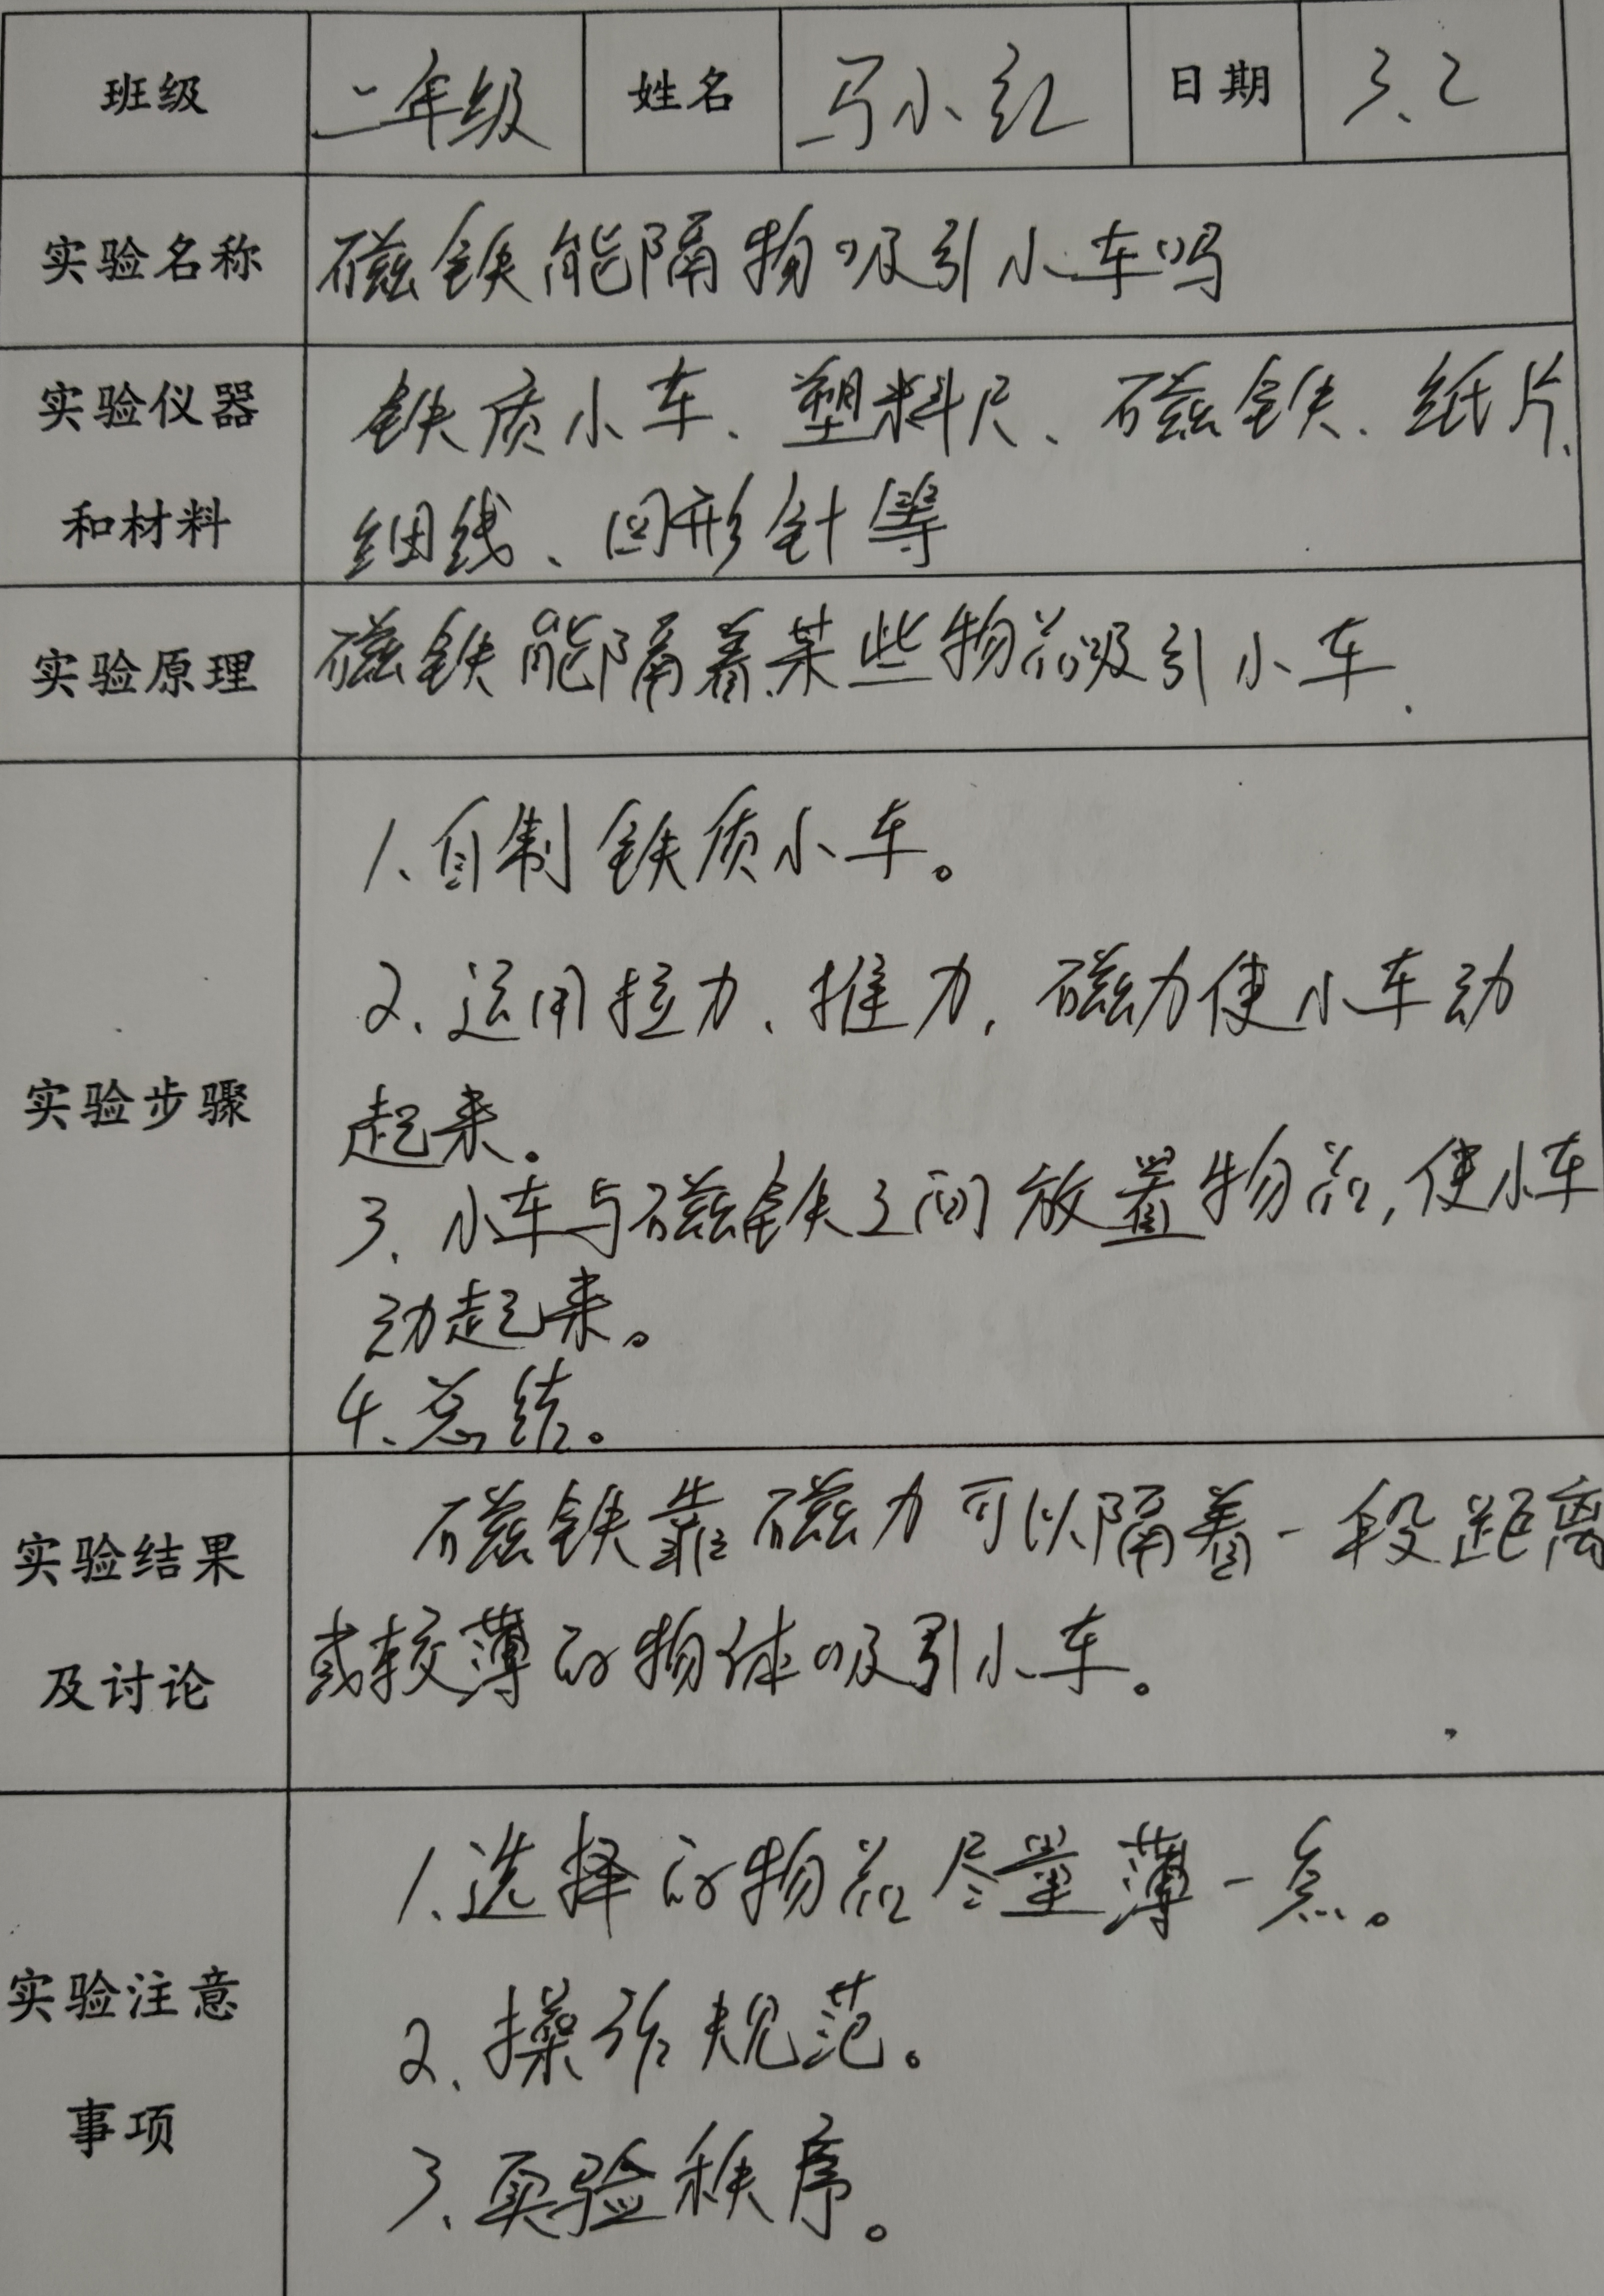 班级 二年级 姓名 马小红 日期 3.2
实验名称 磁铁能隔物吸引小车吗
实验仪器 铁质小车、塑料尺、磁铁、纸片、
和材料 细线、回形针等
实验原理 磁铁能隔着某些物品吸引小车.
1、自制铁质小车。
2、运用拉力、推力,磁力使小车动
实验步骤
起来。
3、小车与磁铁之间放置物品,使小车
动起来。
4、总结。
实验结果 磁铁靠磁力可以隔着一段距离
及讨论 或较薄的物体吸引小车。
1、选择的物品尽量薄一点。
实验注意
2、操作规范。
事项
3、实验秩序。